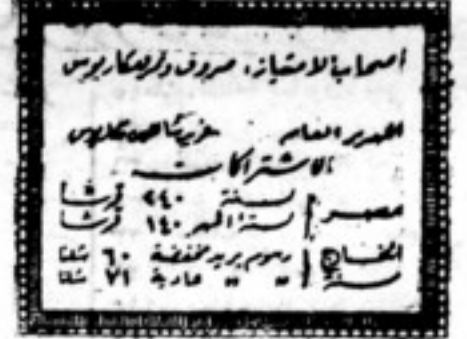 أصحاب الامتياز: صروف ونمر ومكاريوس
المدير العام
الاشتراكات
مصر
لسنة ٢٤٠ قرشا
ستة أشهر ١٤٠ قرشا
الخارج
سنة
رسوم بريد مخفضة ٦٠ شلنا
" " عادية ٧١ شلنا